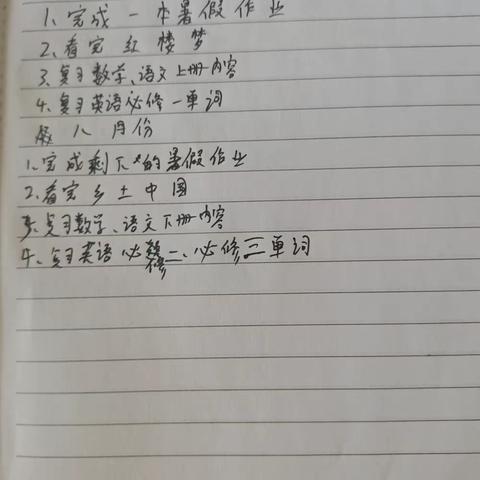 1、完成一本暑假作业
2、看完红楼梦
3、复习数学、语文上册内容
4、复习英语必修一单词
八月份
1、完成剩下的暑假作业
2、看完乡土中国
3、复习数学、语文下册内容
4、复习英语必修二、必修三单词